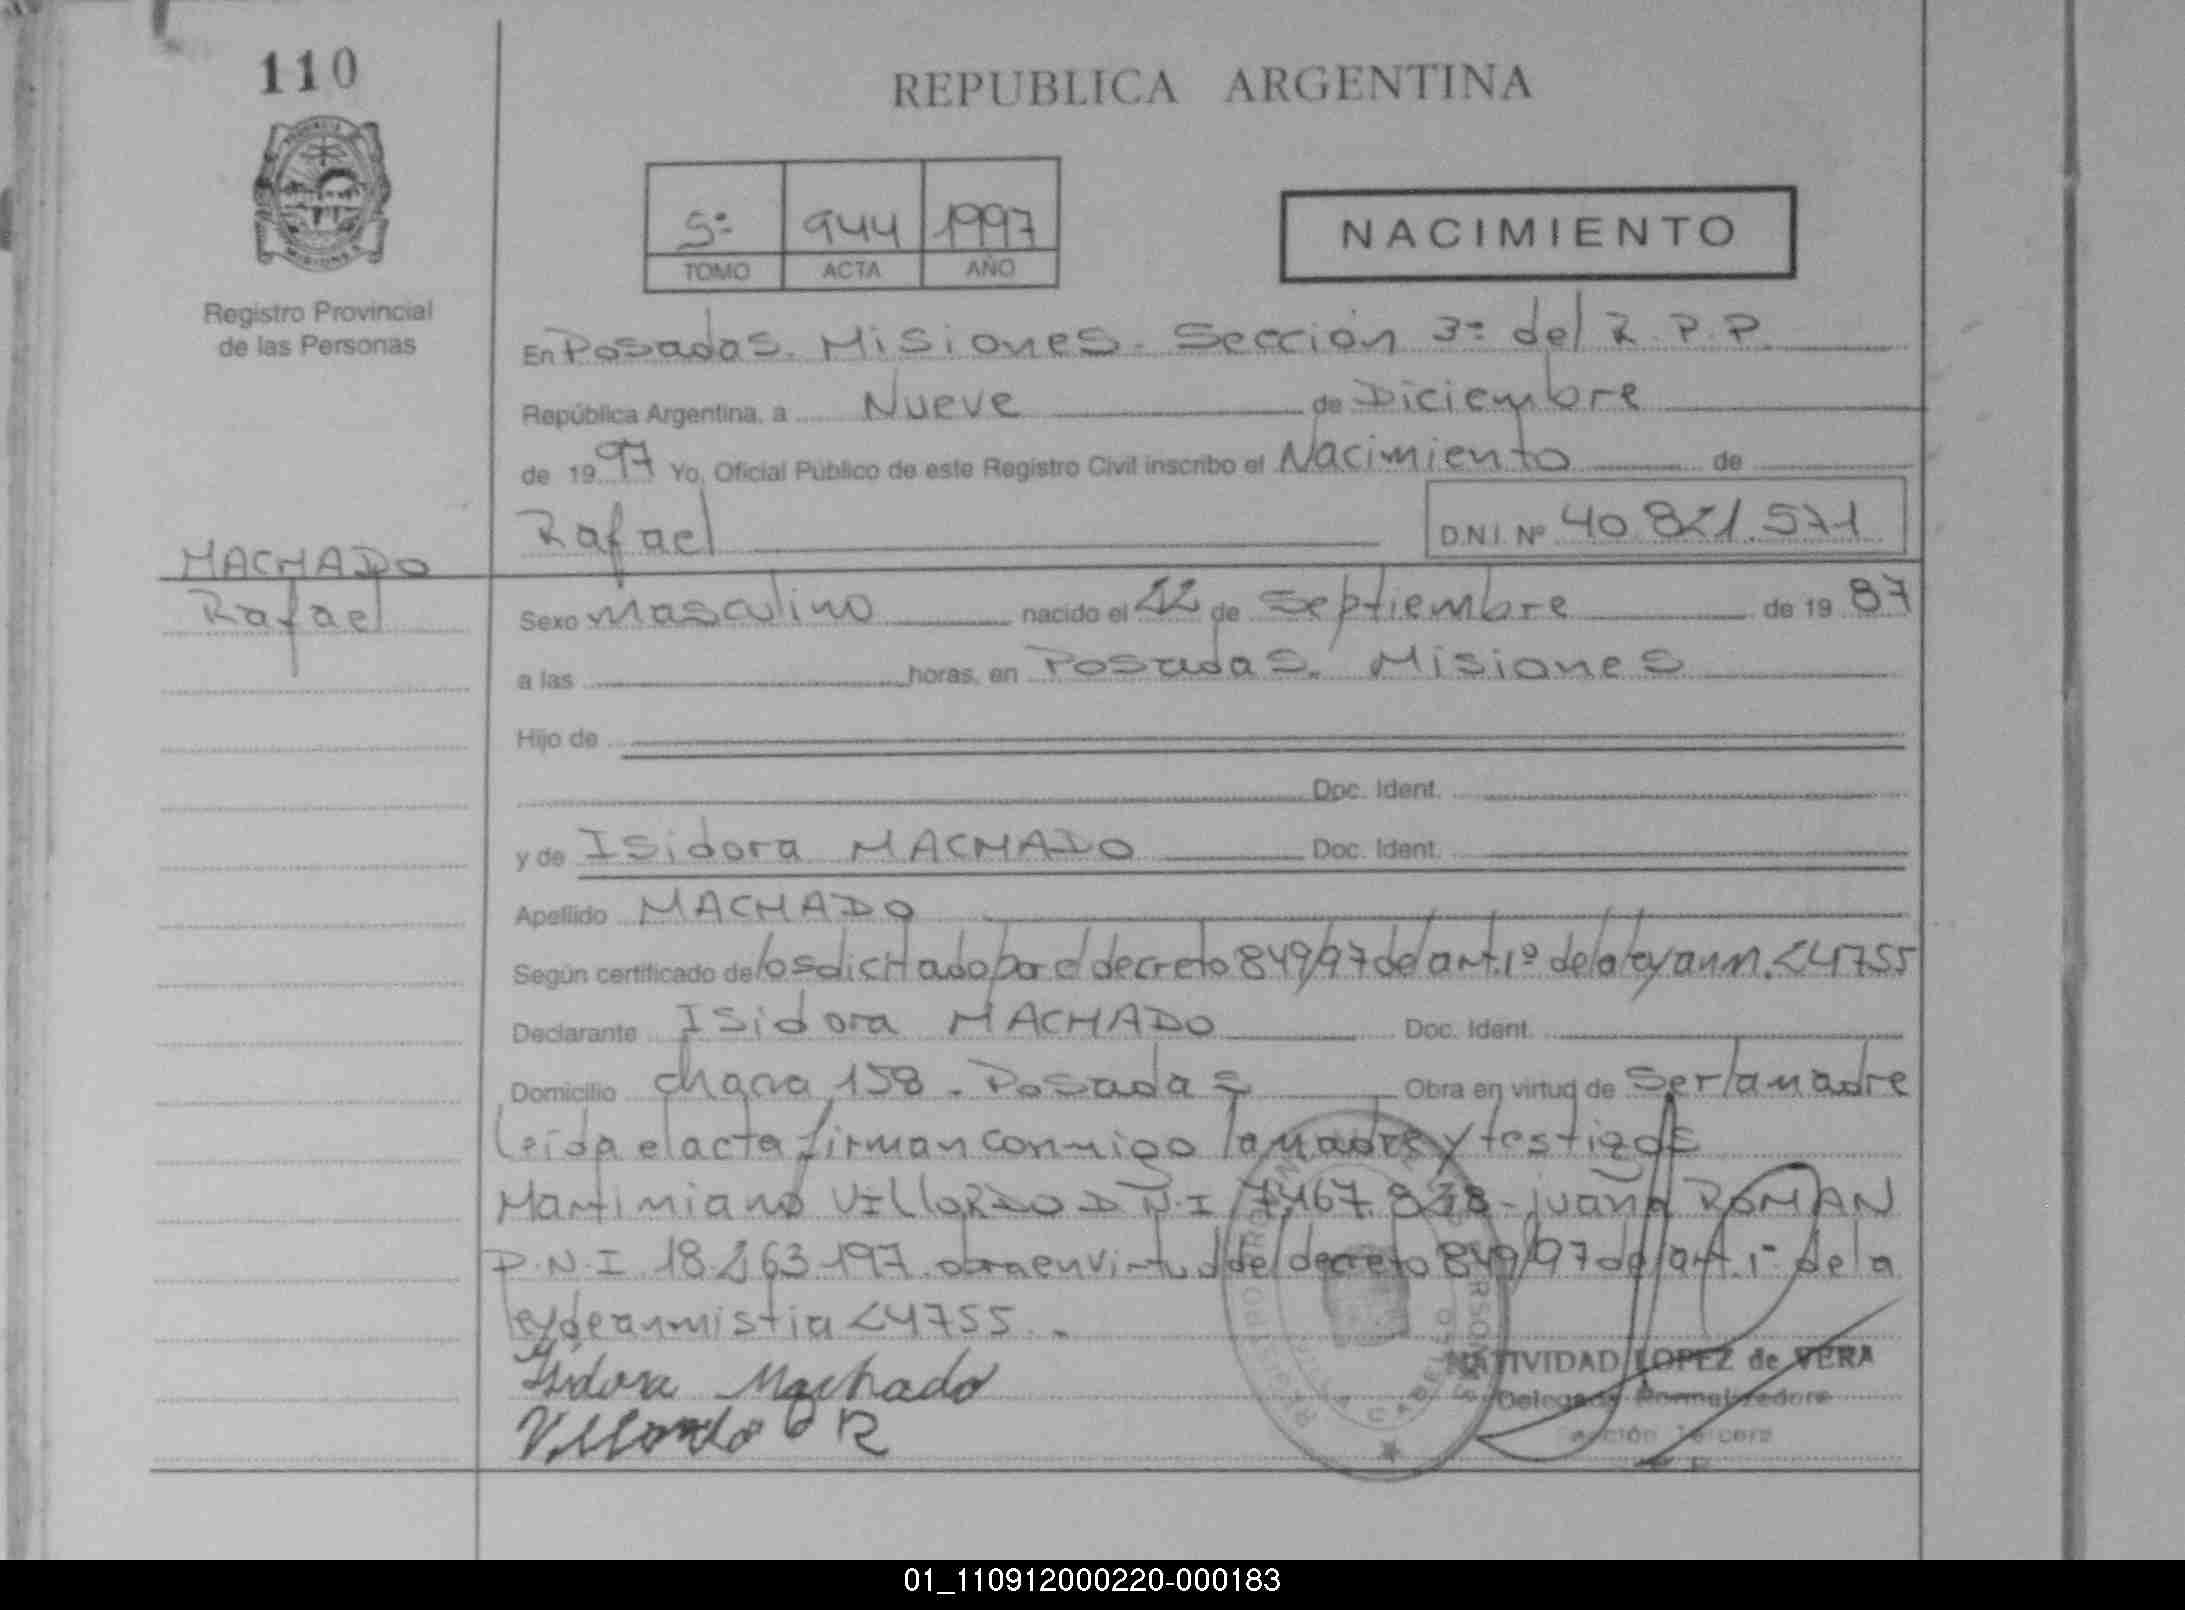 110
REPUBLICA ARGENTINA
5º 944 1997
TOMO ACTA AÑO
NACIMIENTO
Registro Provincial
de las Personas
En Posadas. Misiones. Sección 3º del R.P.P.
República Argentina, a Nueve de Diciembre
de 1997 Yo, Oficial Público de este Registro Civil inscribo el Nacimiento de
Rafael D.N.I. Nº 40.821.571
MACHADO
Rafael
Sexo masculino nacido el 22 de Septiembre de 1987
a las horas, en Posadas. Misiones
Hijo de
Doc. Ident.
y de Isidora MACHADO Doc. Ident.
Apellido MACHADO
Según certificado de los dictado por el decreto 849/97 del art. 1º de la ley 24755
Declarante Isidora MACHADO Doc. Ident.
Domicilio chacra 158 - Posadas Obra en virtud de ser la madre
leída el acta firman conmigo la madre y testigos
Martiniano VILLORDO D.N.I 7.467.838 - juana ROMAN
D.N.I 18.263.197 obra en virtud del decreto 849/97 del art. 1º de la
ley de anmistia 24755.
Isidora Machado
Villordo R
NATIVIDAD LOPEZ de VERA
Delegada Normalizadora
Sección Tercera
01_110912000220-000183